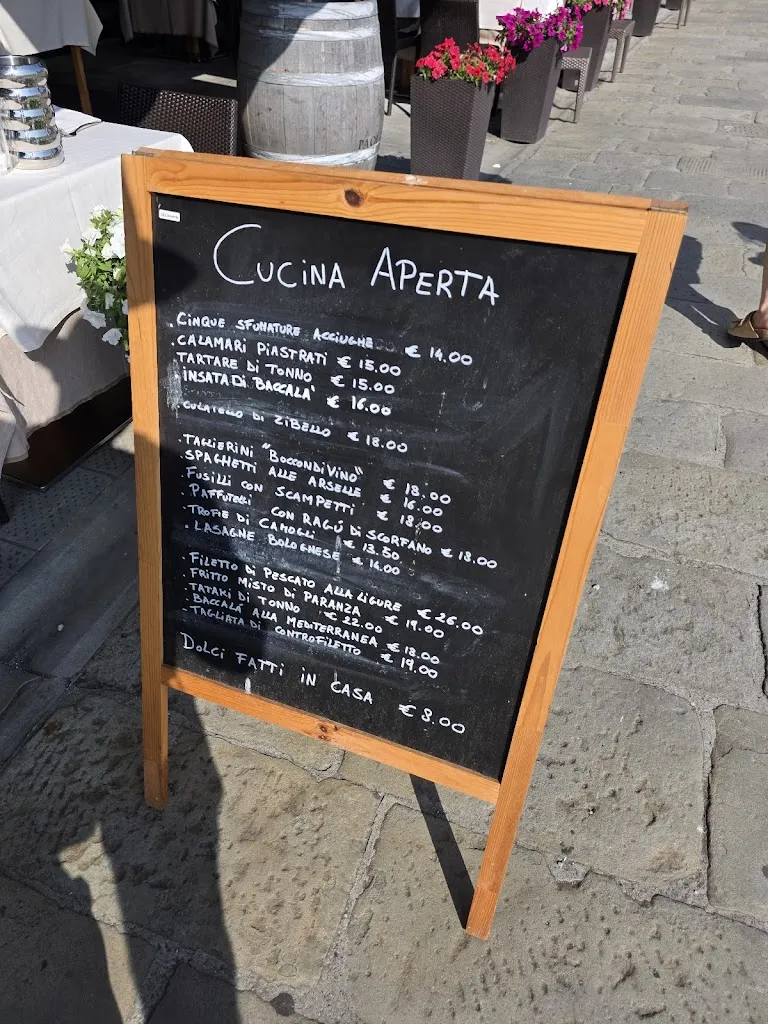 CUCINA APERTA
. CINQUE SFUMATURE ACCIUGHE € 14.00
. CALAMARI PIASTRATI € 15.00
TARTARE DI TONNO € 15.00
INSATA DI BACCALA' € 16.00
CULATELLO DI ZIBELLO € 18.00
. TAGLIERINI "BOCCONDIVINO" € 18.00
. SPAGHETTI ALLE ARSELLE € 16.00
. FUSILLI CON SCAMPETTI € 18.00
. PAFFUTELLI CON RAGÚ DI SCORFANO € 18.00
. TROFIE DI CAMOGLI € 13.50
. LASAGNE BOLOGNESE € 14.00
. FILETTO DI PESCATO ALLA LIGURE € 26.00
. FRITTO MISTO DI PARANZA € 19.00
. TATAKI DI TONNO € 22.00
. BACCALÁ ALLA MEDITERRANEA € 18.00
. TAGLIATA DI CONTROFILETTO € 19.00
DOLCI FATTI IN CASA € 8.00